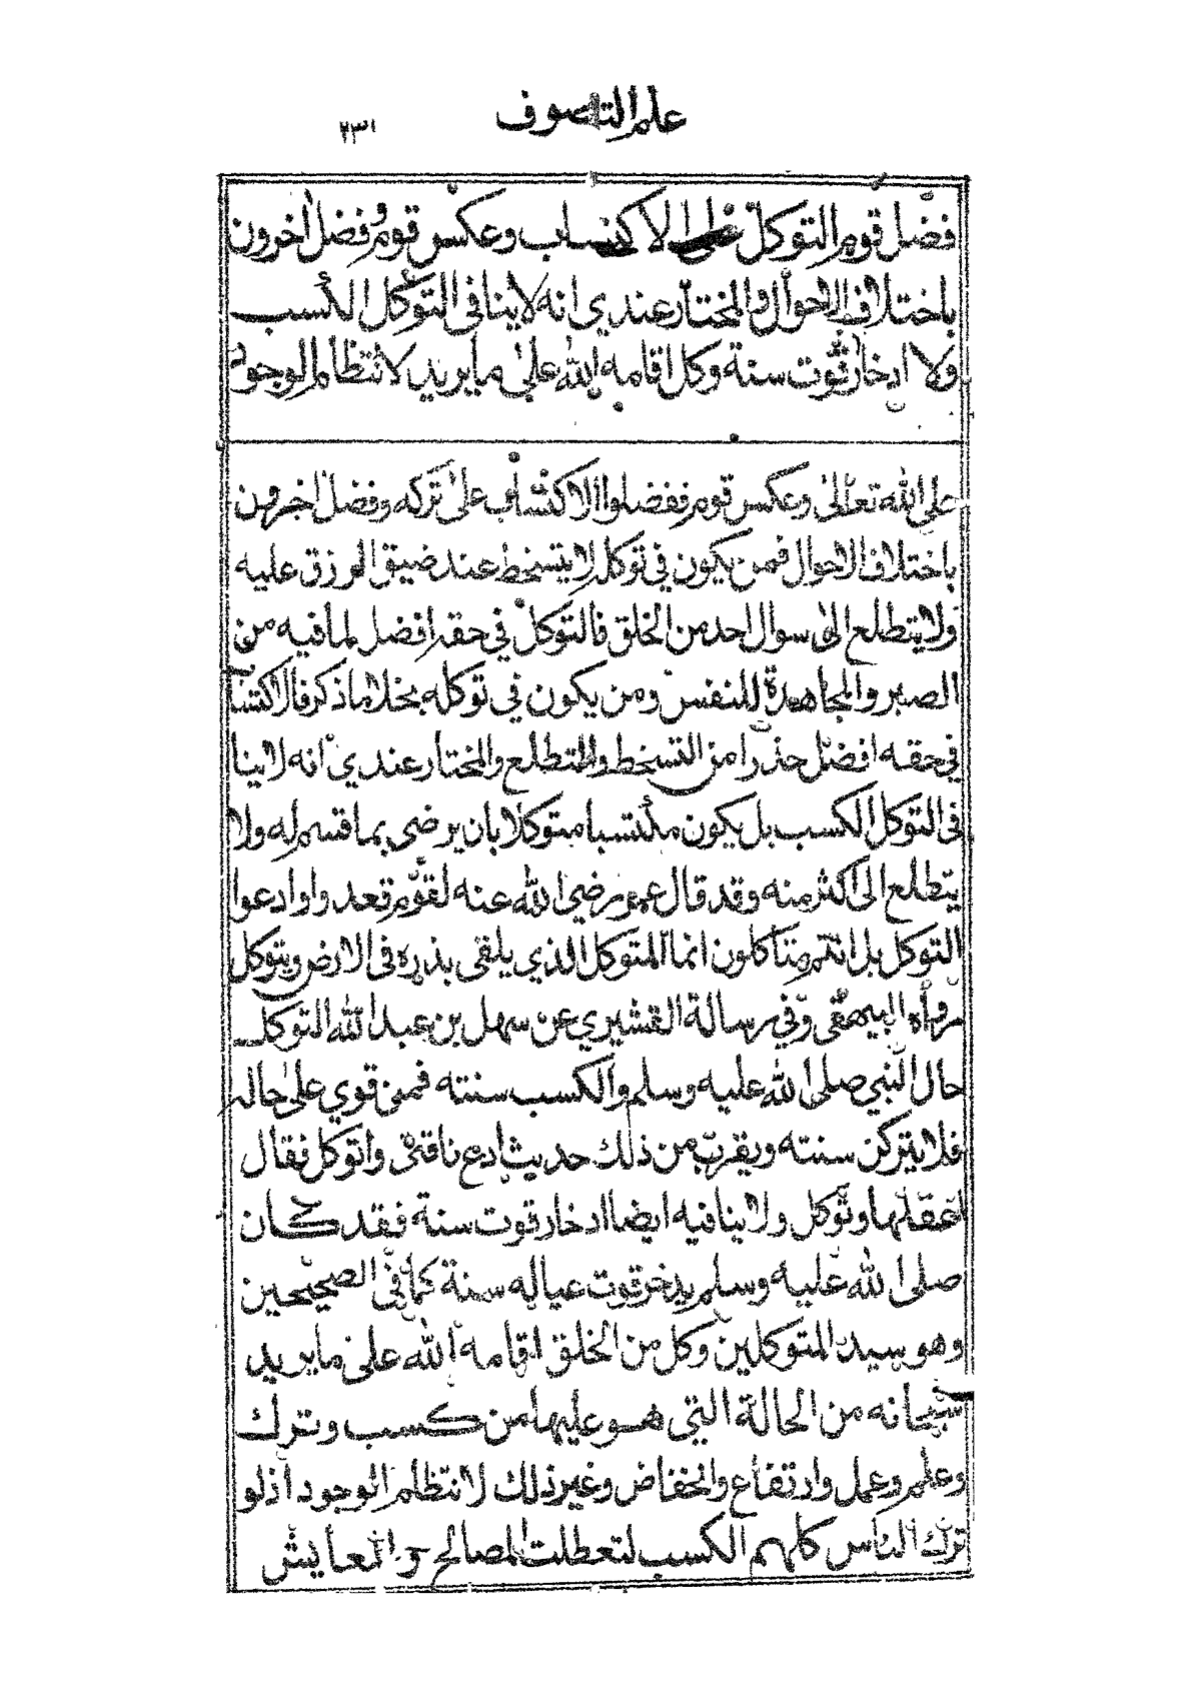 علم التصوف
٢٣١
فضل قوم التوكل على الاكتساب وعكس قوم وفضل اخرون
باختلاف الاحوال والمختار عندي انه لا ينافي التوكل الكسب
ولا ادخار قوت سنة وكل اقامه الله على ما يريد لانتظام الوجود
على الله تعالى وعكس قوم ففضلوا الاكتساب على تركه وفضل اخرون
باختلاف الاحوال فمن يكون في توكله لا يتسخط عند ضيق الرزق عليه
ولا يتطلع الى سوال احد من الخلق فالتوكل في حقه افضل لما فيه من
الصبر والمجاهدة للنفس ومن يكون في توكله بخلاف ما ذكر فالاكتسا
في حقه افضل حذرا من التسخط والتطلع والمختار عندي انه لا ينا
في التوكل الكسب بل يكون مكتسبا متوكلا بان يرضى بما قسم له ولا
يتطلع الى اكثر منه وقد قال عمر رضي الله عنه لقوم قعدوا وادعوا
التوكل بل انتم متأكلون انما المتوكل الذي يلقى بذره في الارض ويتوكل
رواه البيهقى وفي رسالة القشيري عن سهل بن عبد الله التوكل
حال النبي صلى الله عليه وسلم والكسب سنته فمن قوي على حاله
فلا يتركن سنته ويقرب من ذلك حديث ادع ناقتى واتوكل فقال
اعقلها وتوكل ولا ينافيه ايضا ادخار قوت سنة فقد كان
صلى الله عليه وسلم يدخر قوت عياله سنة كما في الصحيحين
وهو سيد المتوكلين وكل من الخلق اقامه الله على ما يريد
سبحانه من الحالة التي هو عليها من كسب وترك
وعلم وعمل وارتفاع وانخفاض وغير ذلك لانتظام الوجود اذ لو
ترك الناس كلهم الكسب لتعطلت المصالح والمعايش